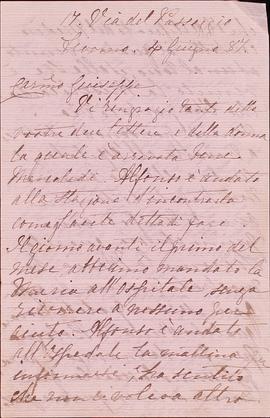 17. Via del Passeggio
Livorno. 4 Giugno 87.
Carmo Giuseppe
Vi ringrazio tanto delle
vostre due lettere e della donna
la quale è arrivata bene
Mercoledì. Alfonso è andato
alla stazione d'incontrarla
come avete detto di fare.
Il giorno avanti il primo del
mese abbiamo mandato la
Maria all'ospitale, senza
ricorrere a nessuno per
aiuto. Alfonso è andato
all'Ospedale la mattina
informarsi, ha sentito
che non ci voleva altro